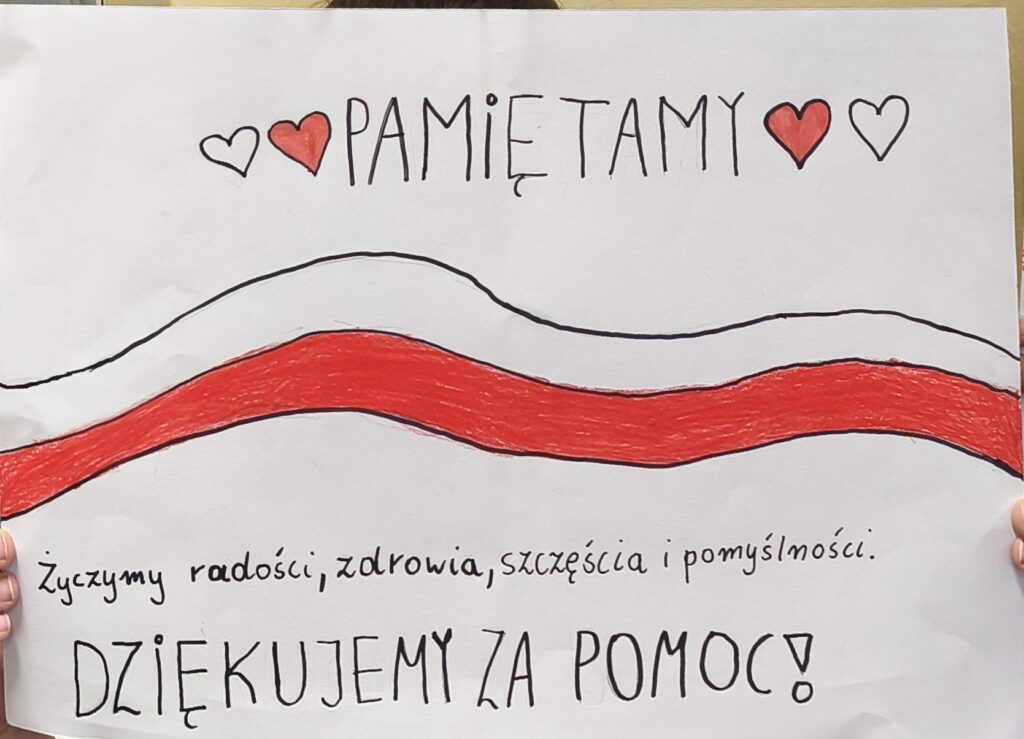 PAMIĘTAMY
Życzymy radości, zdrowia, szczęścia i pomyślności.
DZIĘKUJEMY ZA POMOC!